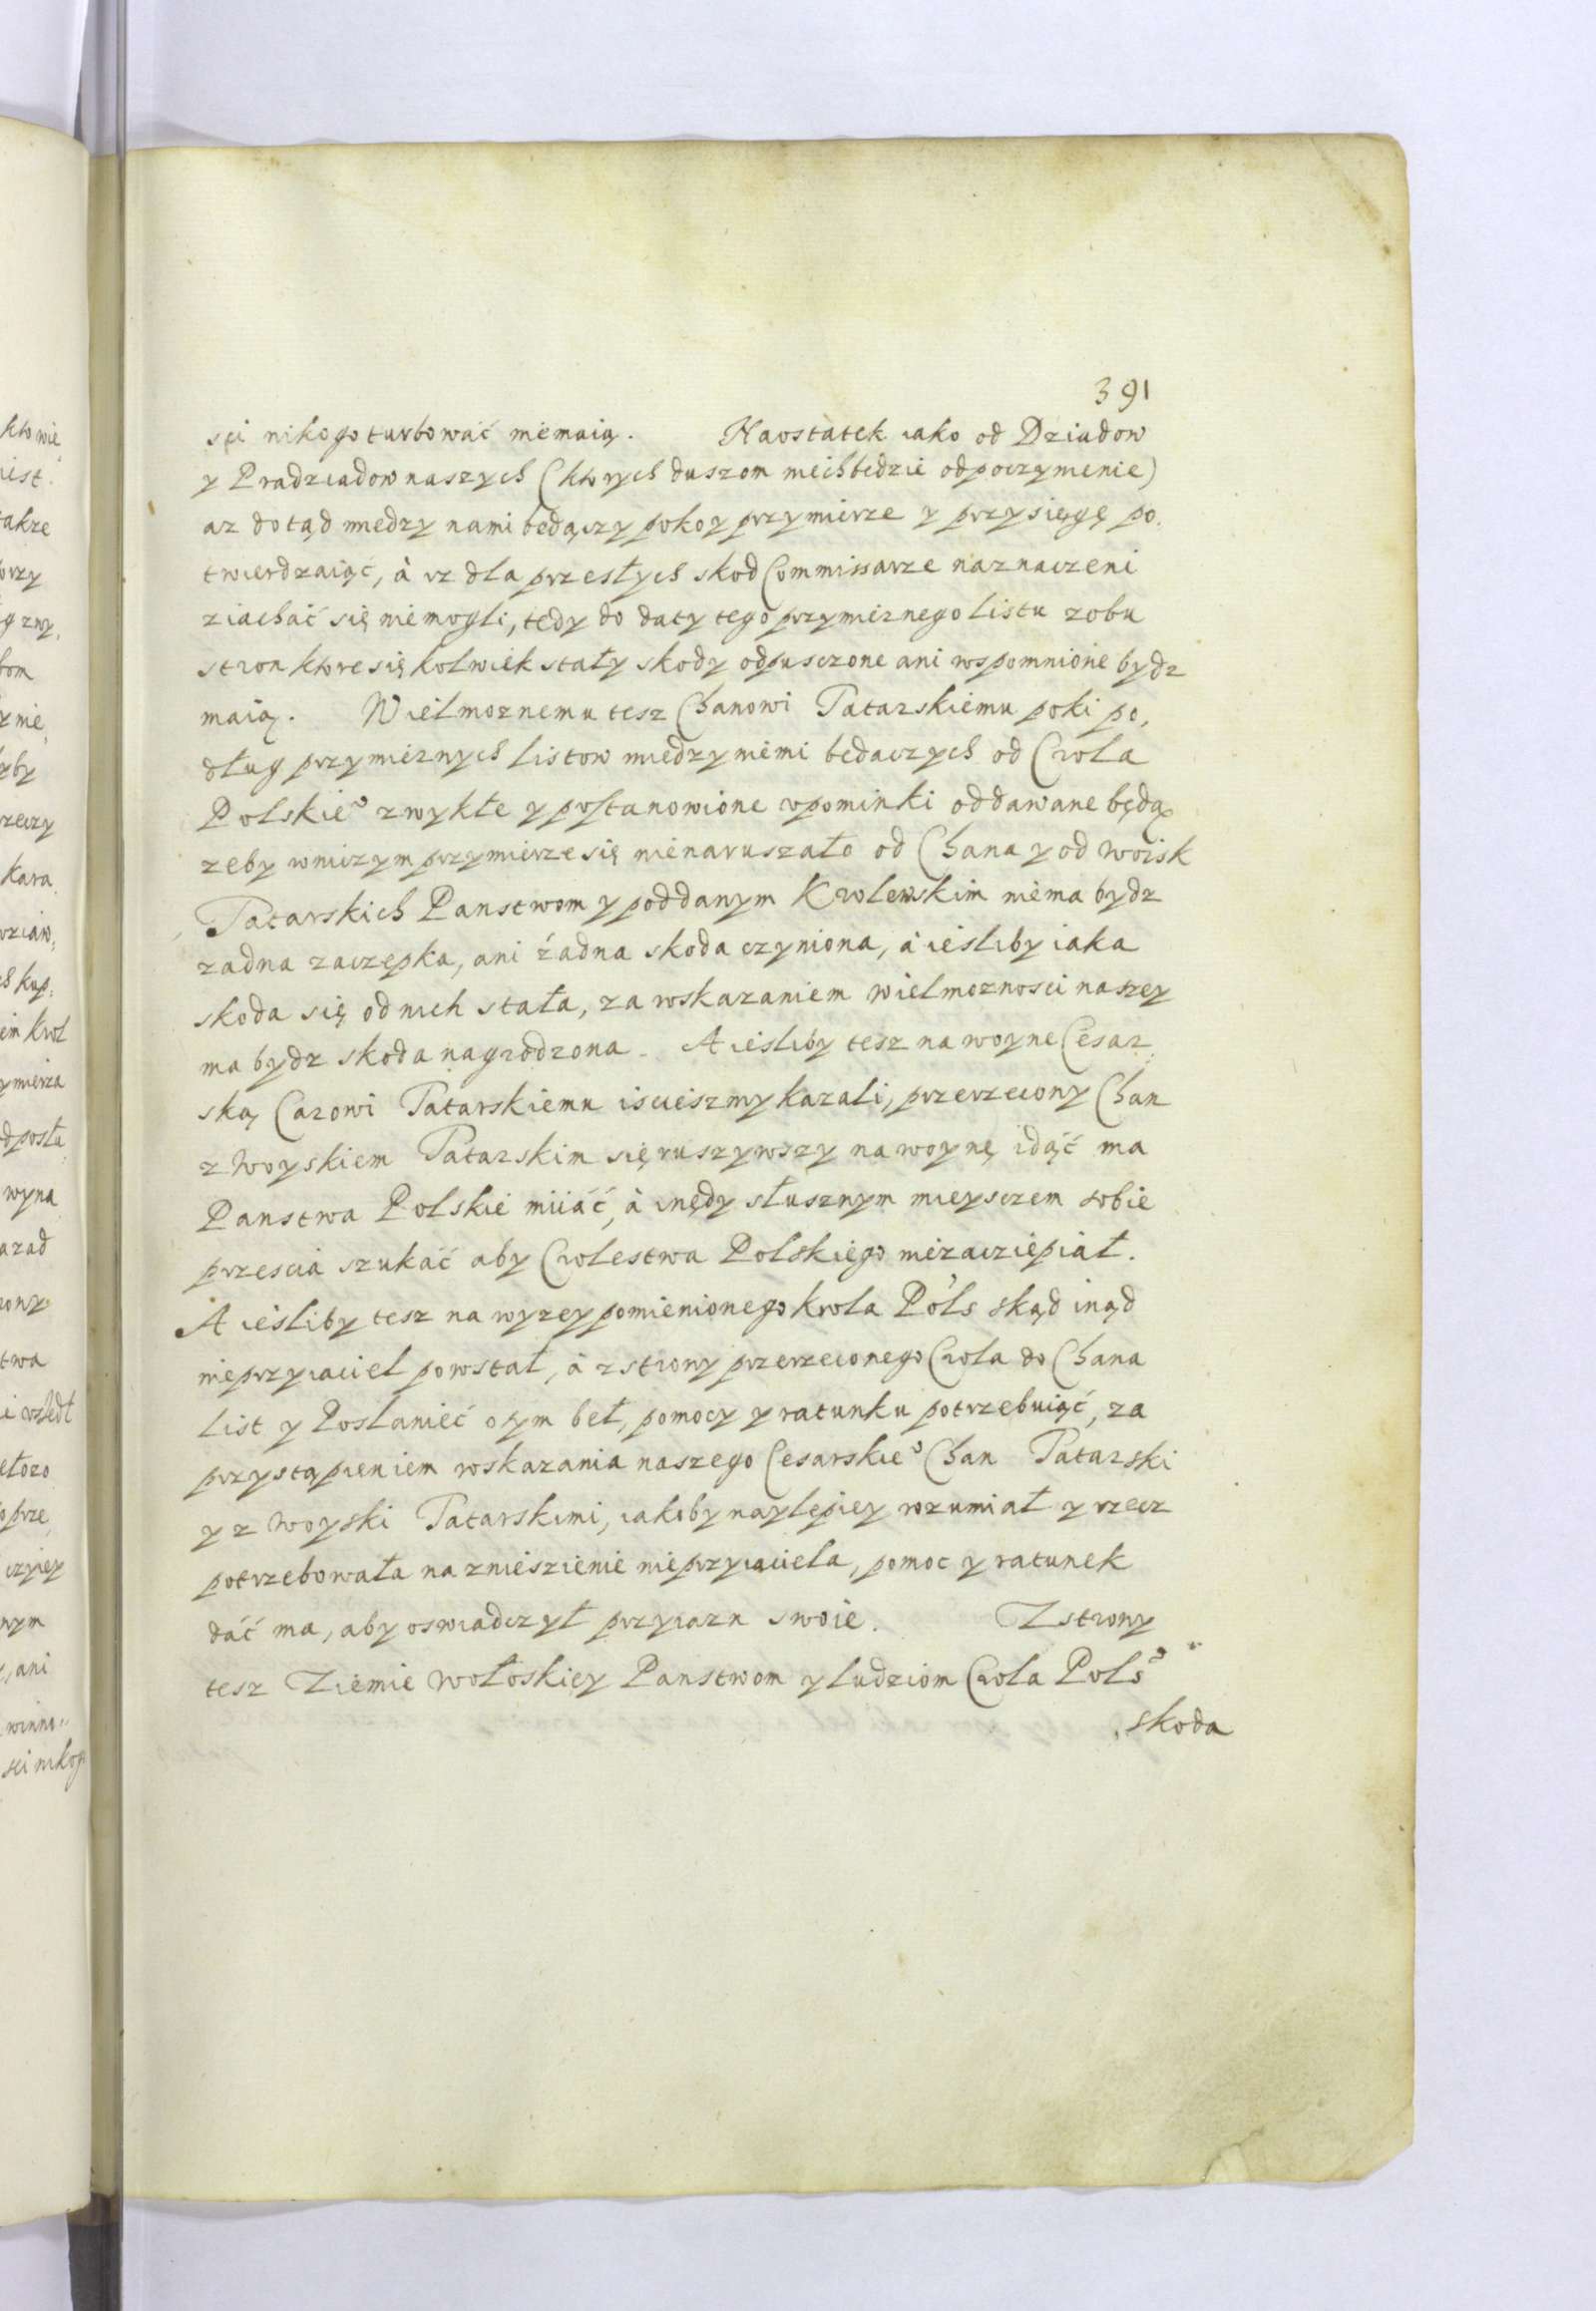 391
sci nikogo turbować niemaią. Naostatek iako od Dziadow
y Pradziadow naszych (ktorych duszom niech bedzie odpoczynienie)
az dotąd miedzy nami bedączy pokoy przymierze y przysięgę po,
twierdzaiąć, à iz dla przeszłych skod Commissarze naznaczeni
ziachać się niemogli, tedy do daty tego przymiernego listu zobu
stron ktore się kolwiek stały skody odpusczone ani wspomnione bydz
maią. Wielmoznemu tesz Chanowi Tatarskiemu poki po,
dług przymiernych listow miedzy niemi bedaczych od Crola
Polskieº zwykłe y postanowione vpominki oddawane będą,
zeby wniczym przymierze się nienaruszało od Chana y od woisk
Tatarskich Panstwom y poddanym Krolewskim niema bydz
zadna zaczepka, ani żadna skoda czyniona, à iesliby iaka
skoda się od nich stała, za wskazaniem wielmoznosci naszey
ma bydz skoda nagrodzona. A iesliby tesz na woyne Cesar,
ską Carowi Tatarskiemu iscieszmy kazali, przerzeczony Chan
z Woyskiem Tatarskim się ruszywszy na woynę idąć ma
Panstwa Polskie miiáć, à inędy słusznym mieysczem sobie
przescia szukać aby Crolestwa Polskiego niezacziepiał.
A iesliby tesz na wyzey pomienionego krola Pols skąd inąd
nieprzyiaciel powstał, à z strony przerzeczonego Crola do Chana
list y Posłanieć otym beł, pomocy y ratunku potrzebuiąć, za
przystąpieniem wskazania naszego Cesarskieº Chan Tatarski
y z Woyski Tatarskimi, iakoby naylepiey rozumiał y rzecz
potrzebowała na zniesczienie nieprzyiaciela, pomoc y ratunek
dáć ma, aby oswiadczył przyiazn swoie. Z strony
tesz Ziemie Wołoskiey Panstwom y ludziom Crola Polsº
skoda